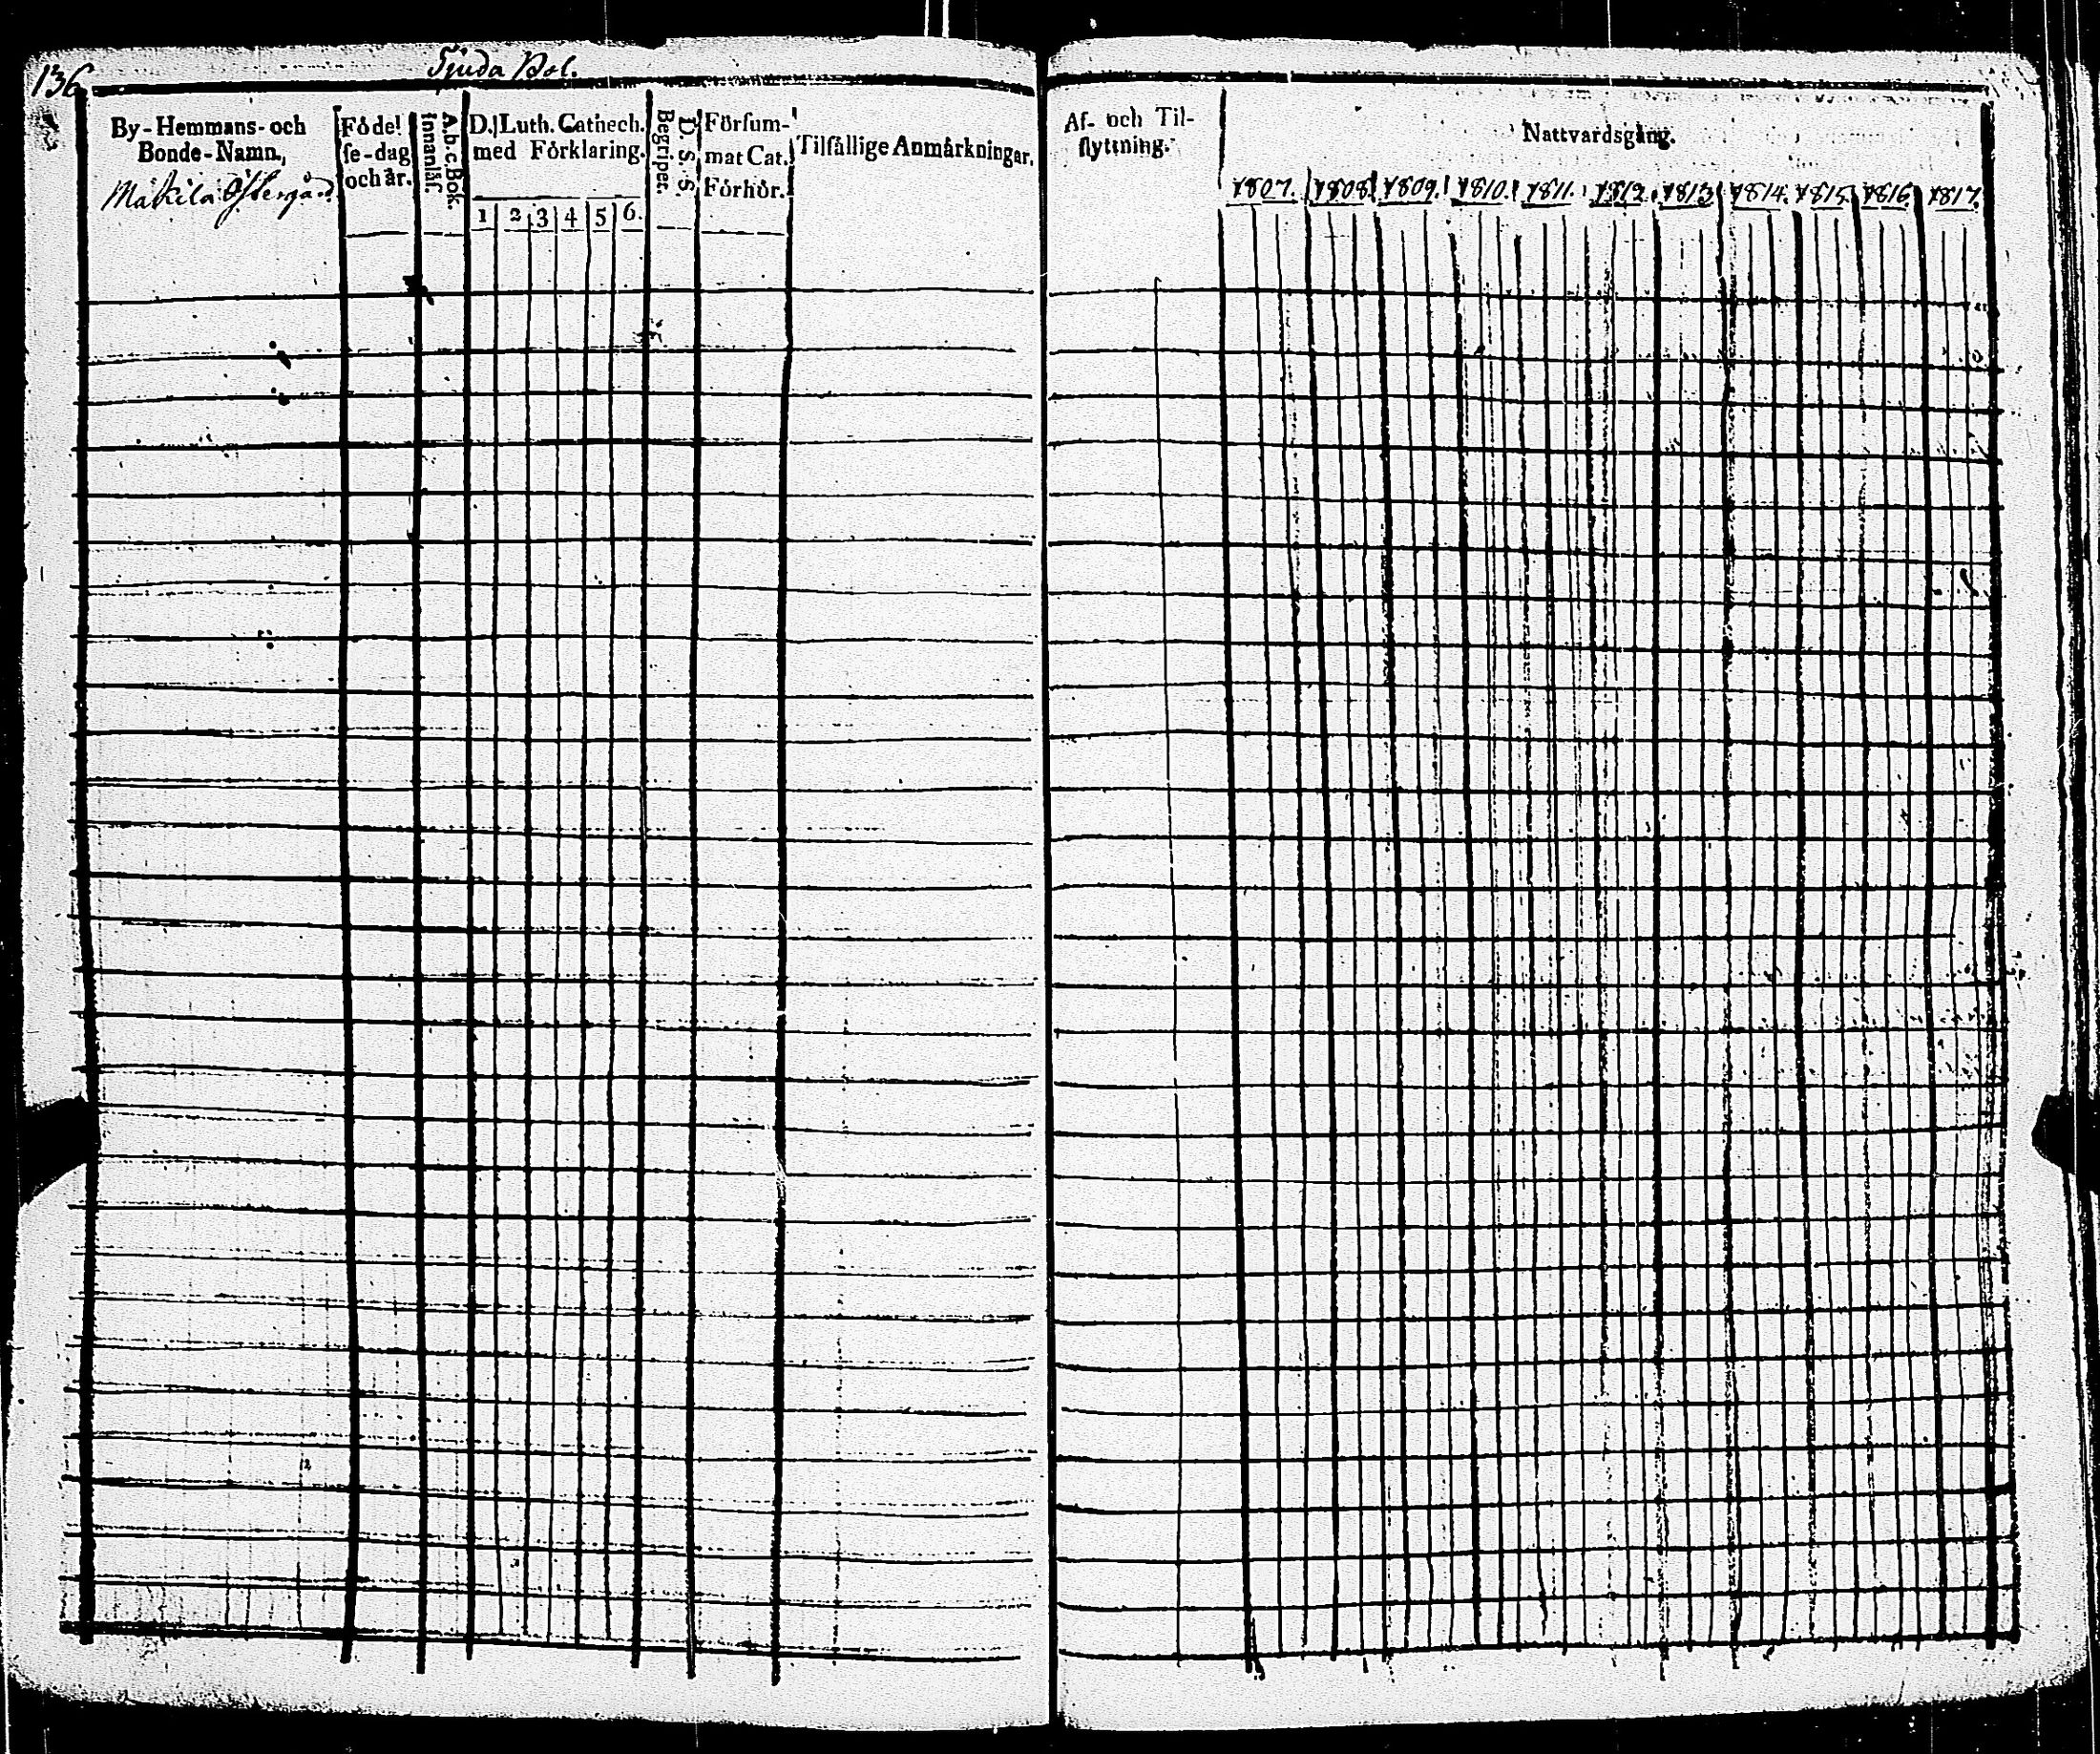 136
Sjuda Bol.
By-Hemmans- och
Bonde-Namn.
Mäkilä Östergård
Födel
se-dag
och år.
A.b.c.Bok.
Innanläs.
D. Luth. Cathech.
med Förklaring.
1 2 3 4 5 6.
Begriper.
D. S. S.
Försum-
mat Cat.
Förhör.
Tilfällige Anmärkningar.
Af- och Til-
flyttning.
Nattvardsgång.
1807. 1808. 1809. 1810. 1811. 1812. 1813. 1814. 1815. 1816. 1817.